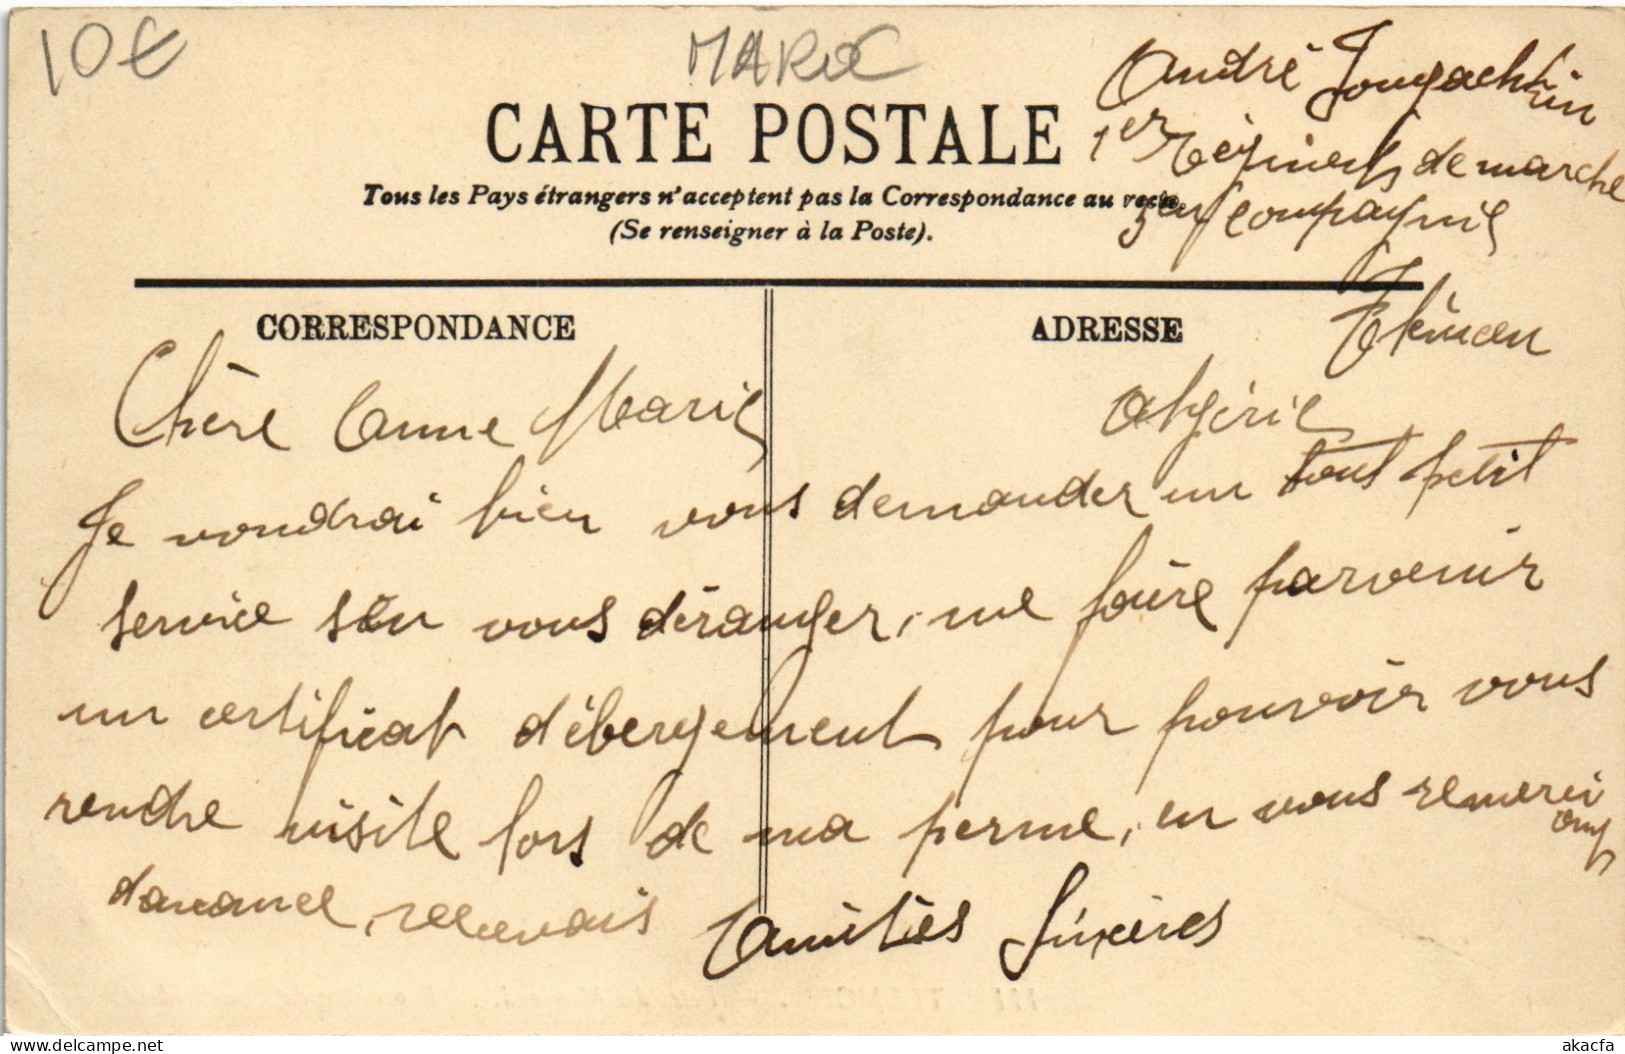 10€
MAROC
CARTE POSTALE
Tous les Pays étrangers n'acceptent pas la Correspondance au recto
(Se renseigner à la Poste).
André
1er Régiment de marche
compagnie
Tlemcen
Algérie
CORRESPONDANCE
ADRESSE
Chère Anne Marie
Je voudrai bien vous demander un tout petit
service sen vous déranger, me faire parvenir
un certificat débergement pour pouvoir vous
rendre visite lors de ma perme, en vous remerci
ant
davance, recevais Amitiés sincères
akacfa